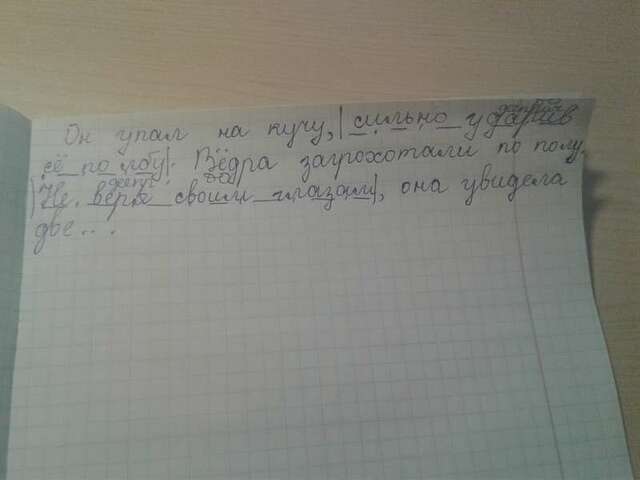 Он упал на кучу, |сильно ударив
её по лбу|. Вёдра загрохотали по полу.
|Не веря своим глазам|, она увидела
две...